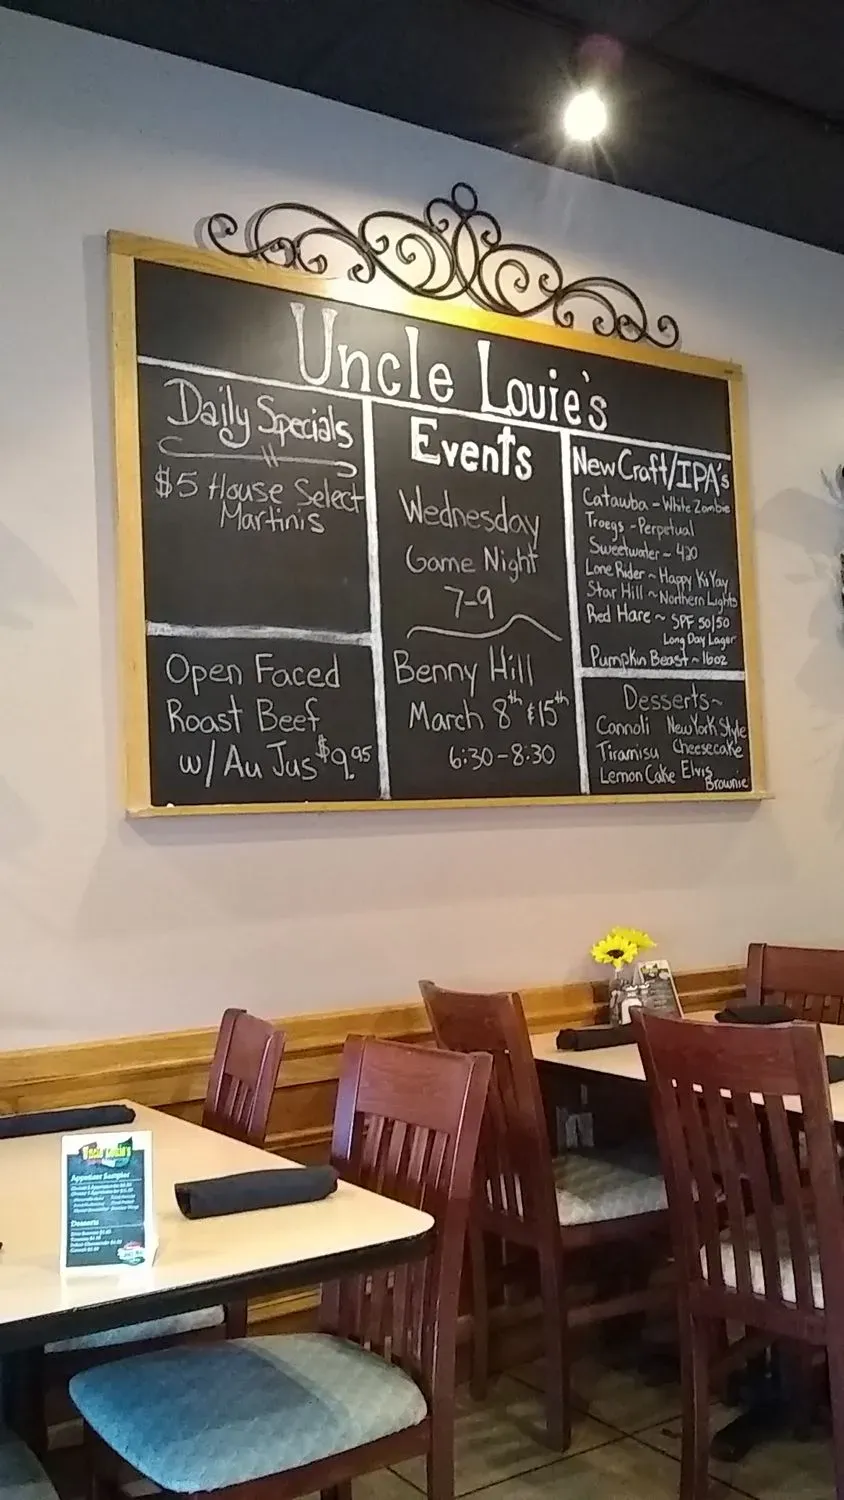 Uncle Louie's
Daily Specials
$5 House Select
Martinis
Open Faced
Roast Beef
w/ Au Jus $9.95
Events
Wednesday
Game Night
7-9
Benny Hill
March 8th & 15th
6:30-8:30
New Craft/IPA's
Catawba - White Zombie
Troegs - Perpetual
Sweetwater ~ 420
Lone Rider ~ Happy Ki Yay
Star Hill ~ Northern Lights
Red Hare ~ SPF 50/50
Long Day Lager
Pumpkin Beast ~ 16oz
Desserts~
Cannoli New York Style
Tiramisu Cheesecake
Lemon Cake Elvis
Brownie
Uncle Louie's
Appetizer Sampler
Desserts